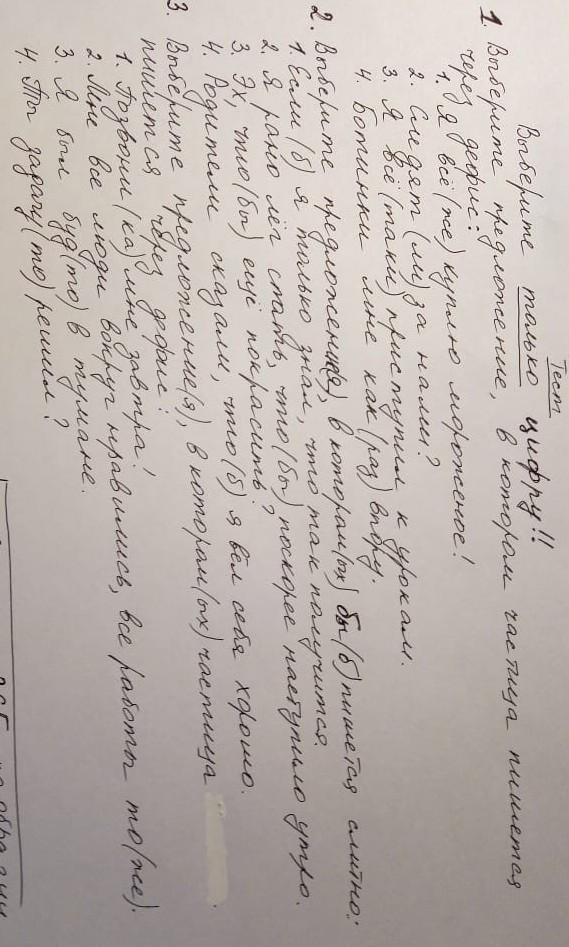 Тест
Выберите только цифру!!
1. Выберите предложение, в котором частица пишется
через дефис:
1. Я всё (же) куплю мороженое!
2. Следят (ли) за нами?
3. Я всё (таки) приступил к урокам.
4. Ботинки мне как (раз) впору.
2. Выберите предложение(я), в котором(ых) бы(б) пишется слитно:
1. Если (б) я только знал, что так получится.
2. Я рано лёг спать, что(бы) поскорее наступило утро.
3. Эх, что(бы) ещё покрасить?
4. Родители сказали, что(б) я вёл себя хорошо.
3. Выберите предложение(я), в котором(ых) частица
пишется через дефис:
1. Позвони (ка) мне завтра!
2. Мне все люди вокруг нравились, все работы то(же).
3. Я был буд(то) в тумане.
4. Ты задачу (то) решил?